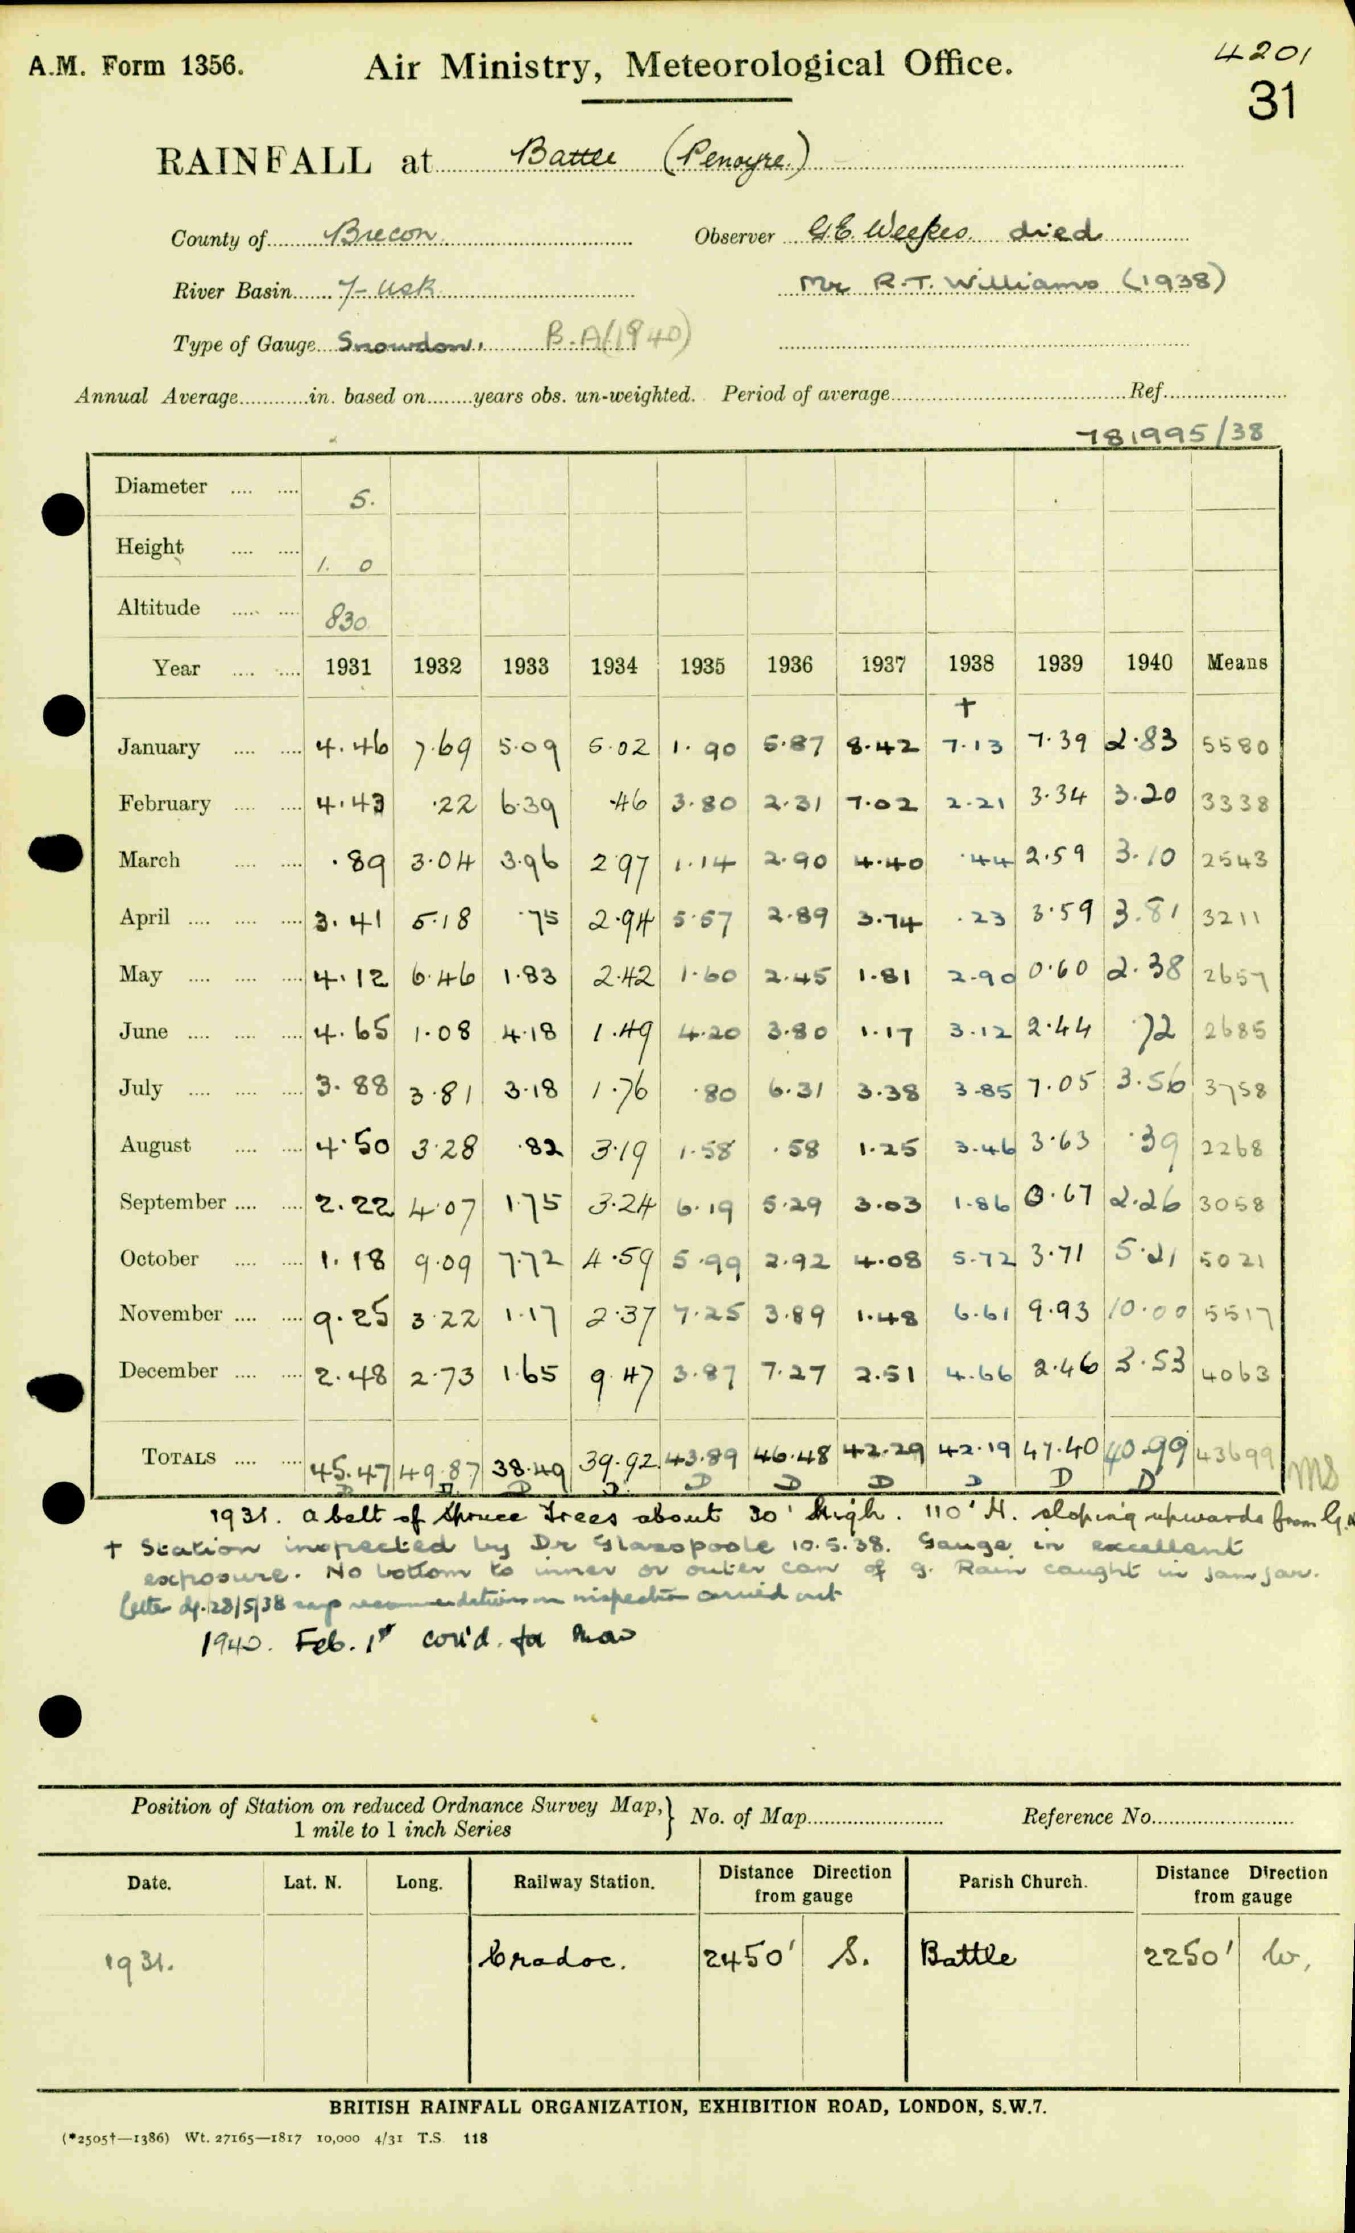 A.M. Form 1356. Air Ministry, Meteorological Office. 4201
31
RAINFALL at Battle (Penoyre.)
County of Brecon. Observer G.E. Weekes. died
River Basin 7-Usk Mr R.T. Williams (1938)
Type of Gauge Snowdon. B.A (1940)
Annual Average in. based on years obs. un-weighted. Period of average Ref.
781995/38
Diameter 5.
Height 1. 0
Altitude 830
Year 1931 1932 1933 1934 1935 1936 1937 1938 1939 1940 Means
†
January 4.46 7.69 5.09 5.02 1.90 5.87 8.42 7.13 7.39 2.83 5580
February 4.43 .22 6.39 .46 3.80 2.31 7.02 2.21 3.34 3.20 3338
March .89 3.04 3.96 2.97 1.14 2.90 4.40 .44 2.59 3.10 2543
April 3.41 5.18 .75 2.94 5.57 2.89 3.74 .23 3.59 3.81 3211
May 4.12 6.46 1.83 2.42 1.60 2.45 1.81 2.90 0.60 2.38 2657
June 4.65 1.08 4.18 1.49 4.20 3.80 1.17 3.12 2.44 .72 2685
July 3.88 3.81 3.18 1.76 .80 6.31 3.38 3.85 7.05 3.56 3758
August 4.50 3.28 .82 3.19 1.58 .58 1.25 3.46 3.63 .39 2268
September 2.22 4.07 1.75 3.24 6.19 5.29 3.03 1.86 0.67 2.26 3058
October 1.18 9.09 7.72 4.59 5.99 2.92 4.08 5.72 3.71 5.21 5021
November 9.25 3.22 1.17 2.37 7.25 3.89 1.48 6.61 9.93 10.00 5517
December 2.48 2.73 1.65 9.47 3.87 7.27 2.51 4.66 2.46 3.53 4063
TOTALS 45.47 49.87 38.49 39.92 43.89 46.48 42.29 42.19 47.40 40.99 43699 MS
D D D D D D D D D D
1931. A belt of Spruce Trees about 30' high. 110' N. sloping upwards from G.
† Station inspected by Dr Glasspoole 10.5.38. Gauge in excellent
exposure. No bottom to inner or outer can of g. Rain caught in jam jar.
Letter of 28/5/38 says recommendations on inspection carried out
1940. Feb. 1st
Position of Station on reduced Ordnance Survey Map, 1 mile to 1 inch Series } No. of Map Reference No.
Date. Lat. N. Long. Railway Station. Distance Direction from gauge Parish Church. Distance Direction from gauge
1931. Cradoc. 2450' S. Battle 2250' W.
BRITISH RAINFALL ORGANIZATION, EXHIBITION ROAD, LONDON, S.W.7.
(*2505†—1386) Wt. 27165—1817 10,000 4/31 T.S. 118